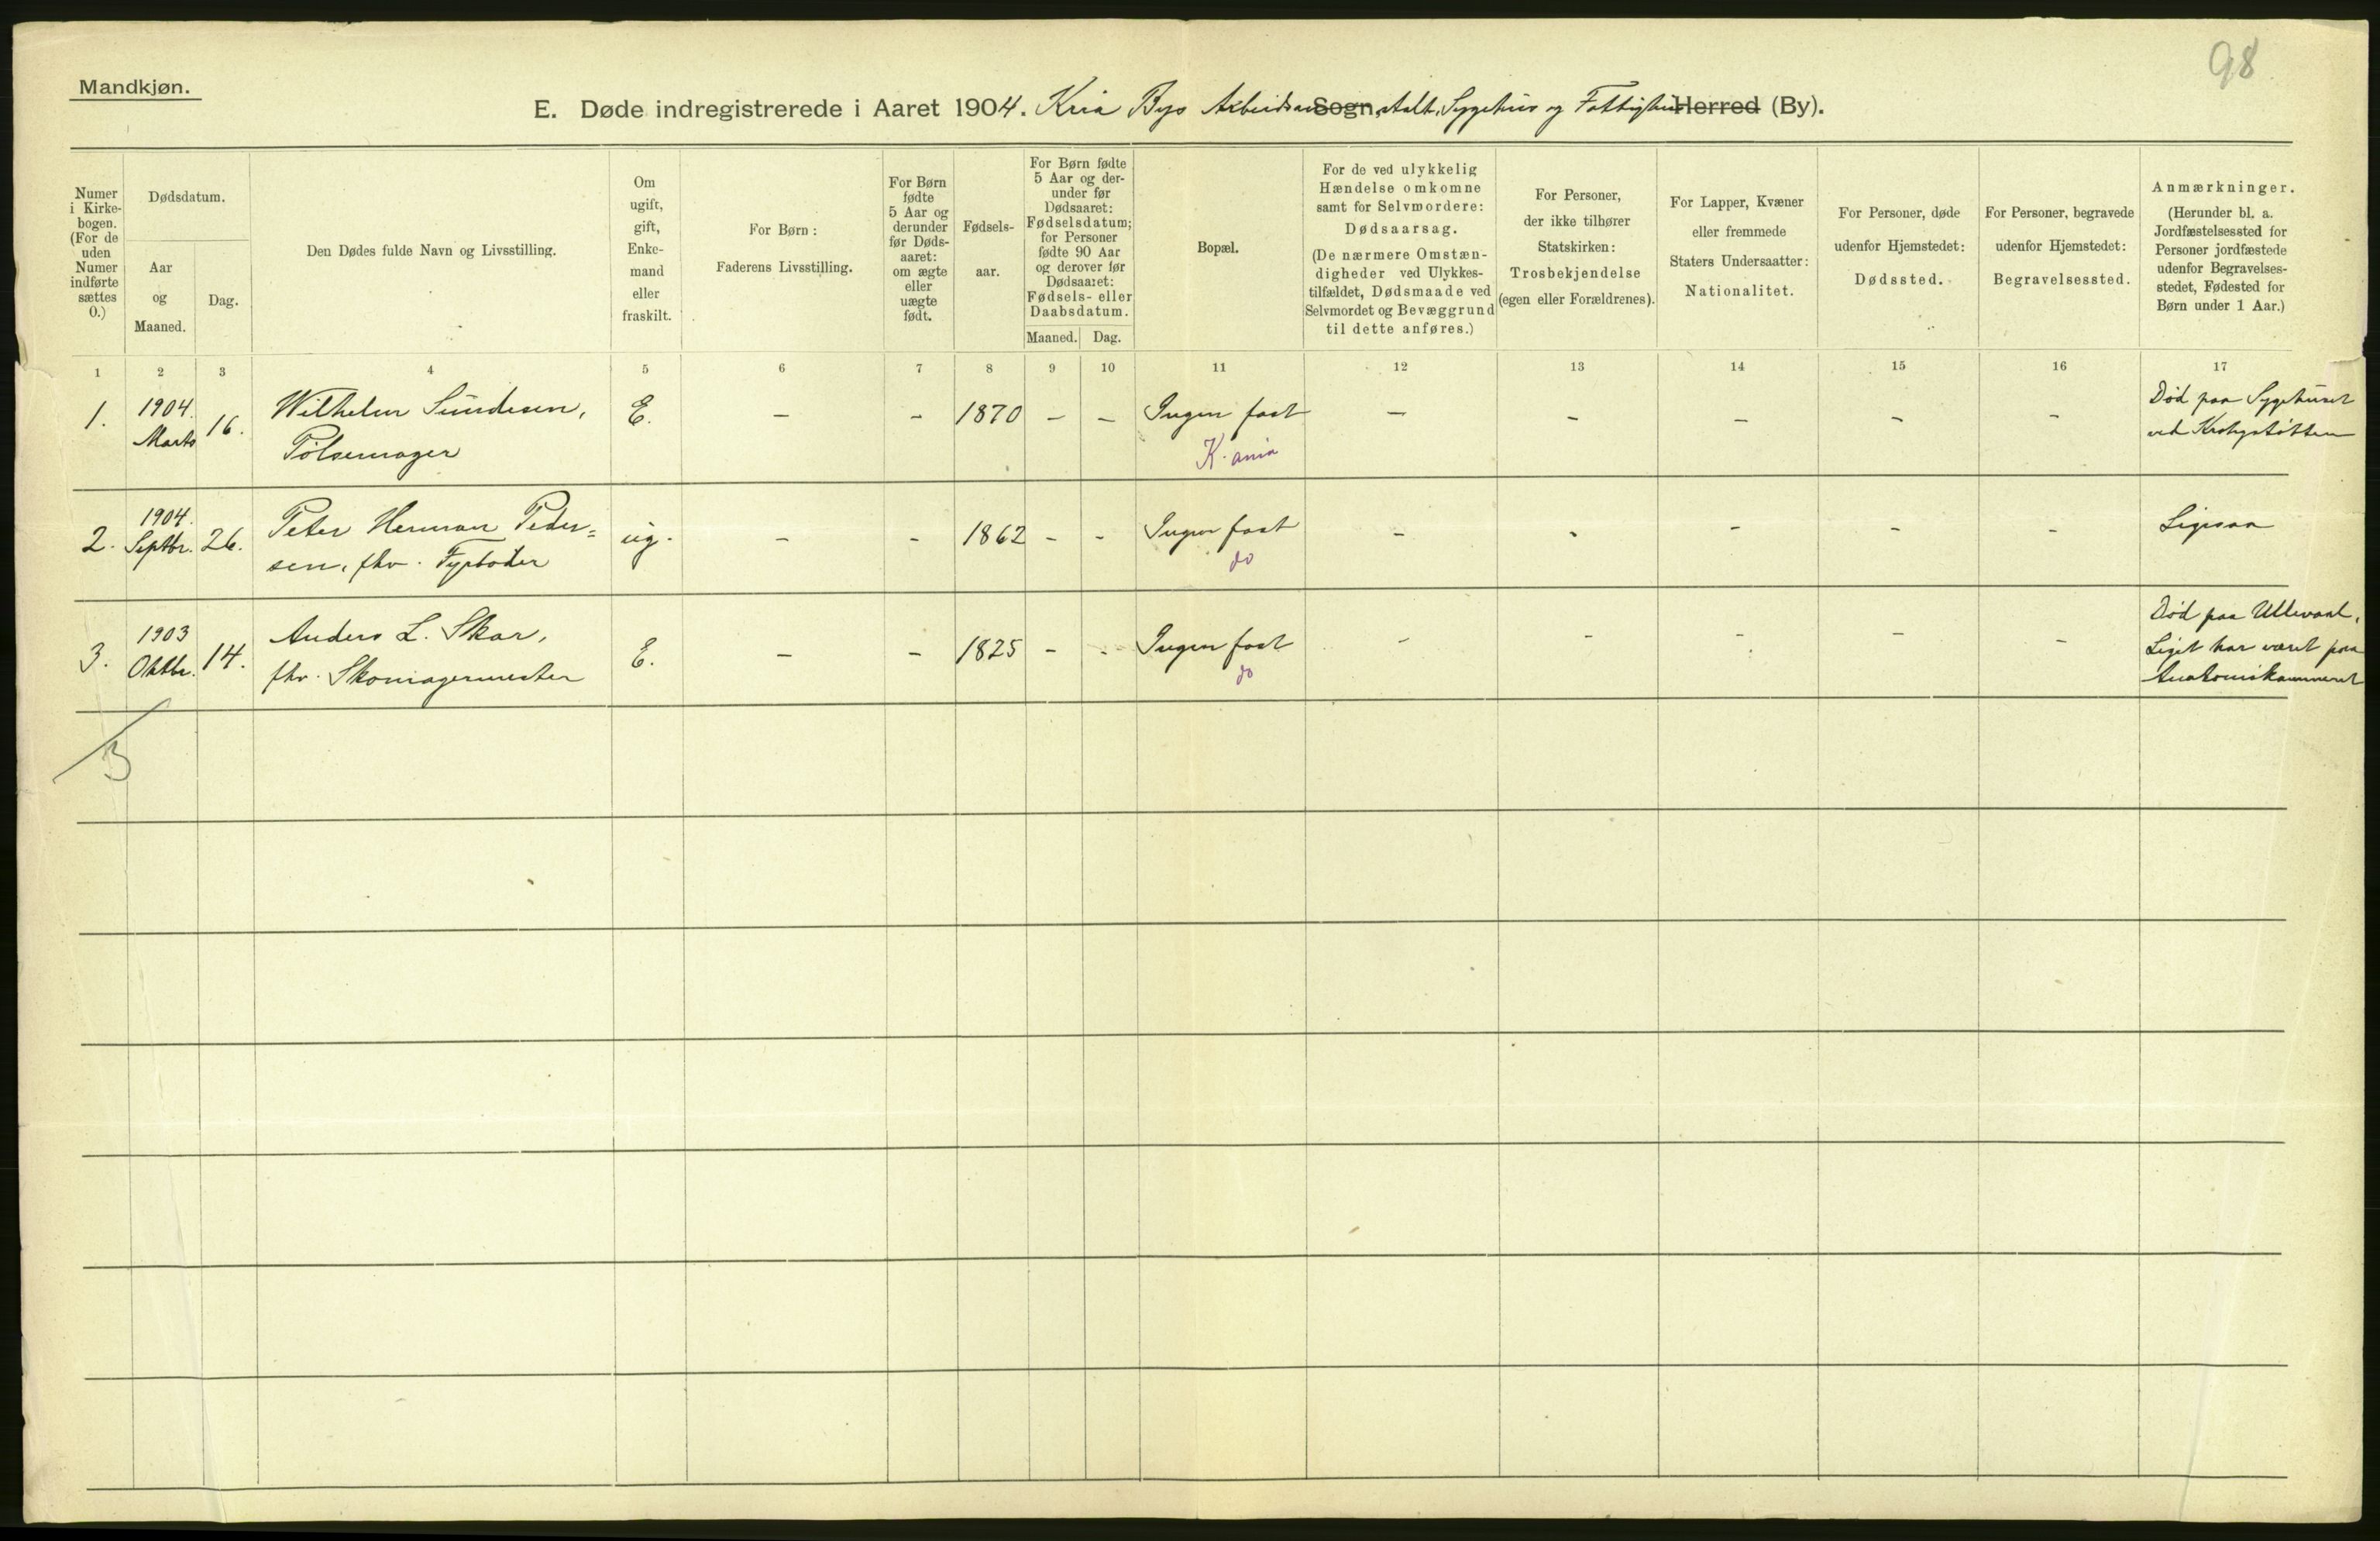 98
Mandkjøn.
E. Døde indregistrerede i Aaret 1904. Kria Bys Arbeidsan Sogn, stalt, Sygehus og Fattighus Herred (By).
Numer
i Kirke-
bogen.
(For de
uden
Numer
indførte
sættes
0.)
Dødsdatum.
Aar
og
Maaned.
Dag.
Den Dødes fulde Navn og Livsstilling.
Om
ugift,
gift,
Enke-
mand
eller
fraskilt.
For Børn:
Faderens Livsstilling.
For Børn
fødte
5 Aar og
derunder
før Døds-
aaret:
om ægte
eller
uægte
født.
Fødsels-
aar.
For Børn fødte
5 Aar og der-
under før
Dødsaaret:
Fødselsdatum;
for Personer
fødte 90 Aar
og derover før
Dødsaaret:
Fødsels- eller
Daabsdatum.
Maaned. Dag.
Bopæl.
For de ved ulykkelig
Hændelse omkomne
samt for Selvmordere:
Dødsaarsag.
(De nærmere Omstæn-
digheder ved Ulykkes-
tilfældet, Dødsmaade ved
Selvmordet og Bevæggrund
til dette anføres.)
For Personer,
der ikke tilhører
Statskirken:
Trosbekjendelse
(egen eller Forældrenes).
For Lapper, Kvæner
eller fremmede
Staters Undersaatter:
Nationalitet.
For Personer, døde
udenfor Hjemstedet:
Dødssted.
For Personer, begravede
udenfor Hjemstedet:
Begravelsessted.
Anmærkninger.
(Herunder bl. a.
Jordfæstelsessted for
Personer jordfæstede
udenfor Begravelses-
stedet, Fødested for
Børn under 1 Aar.)
1 2 3 4 5 6 7 8 9 10 11 12 13 14 15 16 17
1. 1904. Marts 16. Wilhelm Sundesen, E. – – 1870 – – Ingen fast – – – – – Død paa Sygehuset
Pølsemager K.ania ved Krohgstøtten
2. 1904. Septbr. 26. Peter Herman Peder= ug. – – 1862 – – Ingen fast – – – – – Ligesaa
sen, fhv. Fyrbøder do
3. 1903 Oktbr. 14. Anders L. Skar, E. – – 1825 – – Ingen fast – – – – – Død paa Ullevaal.
fhv. Skomagermester do Liget har været paa
Anatomikammeret
3